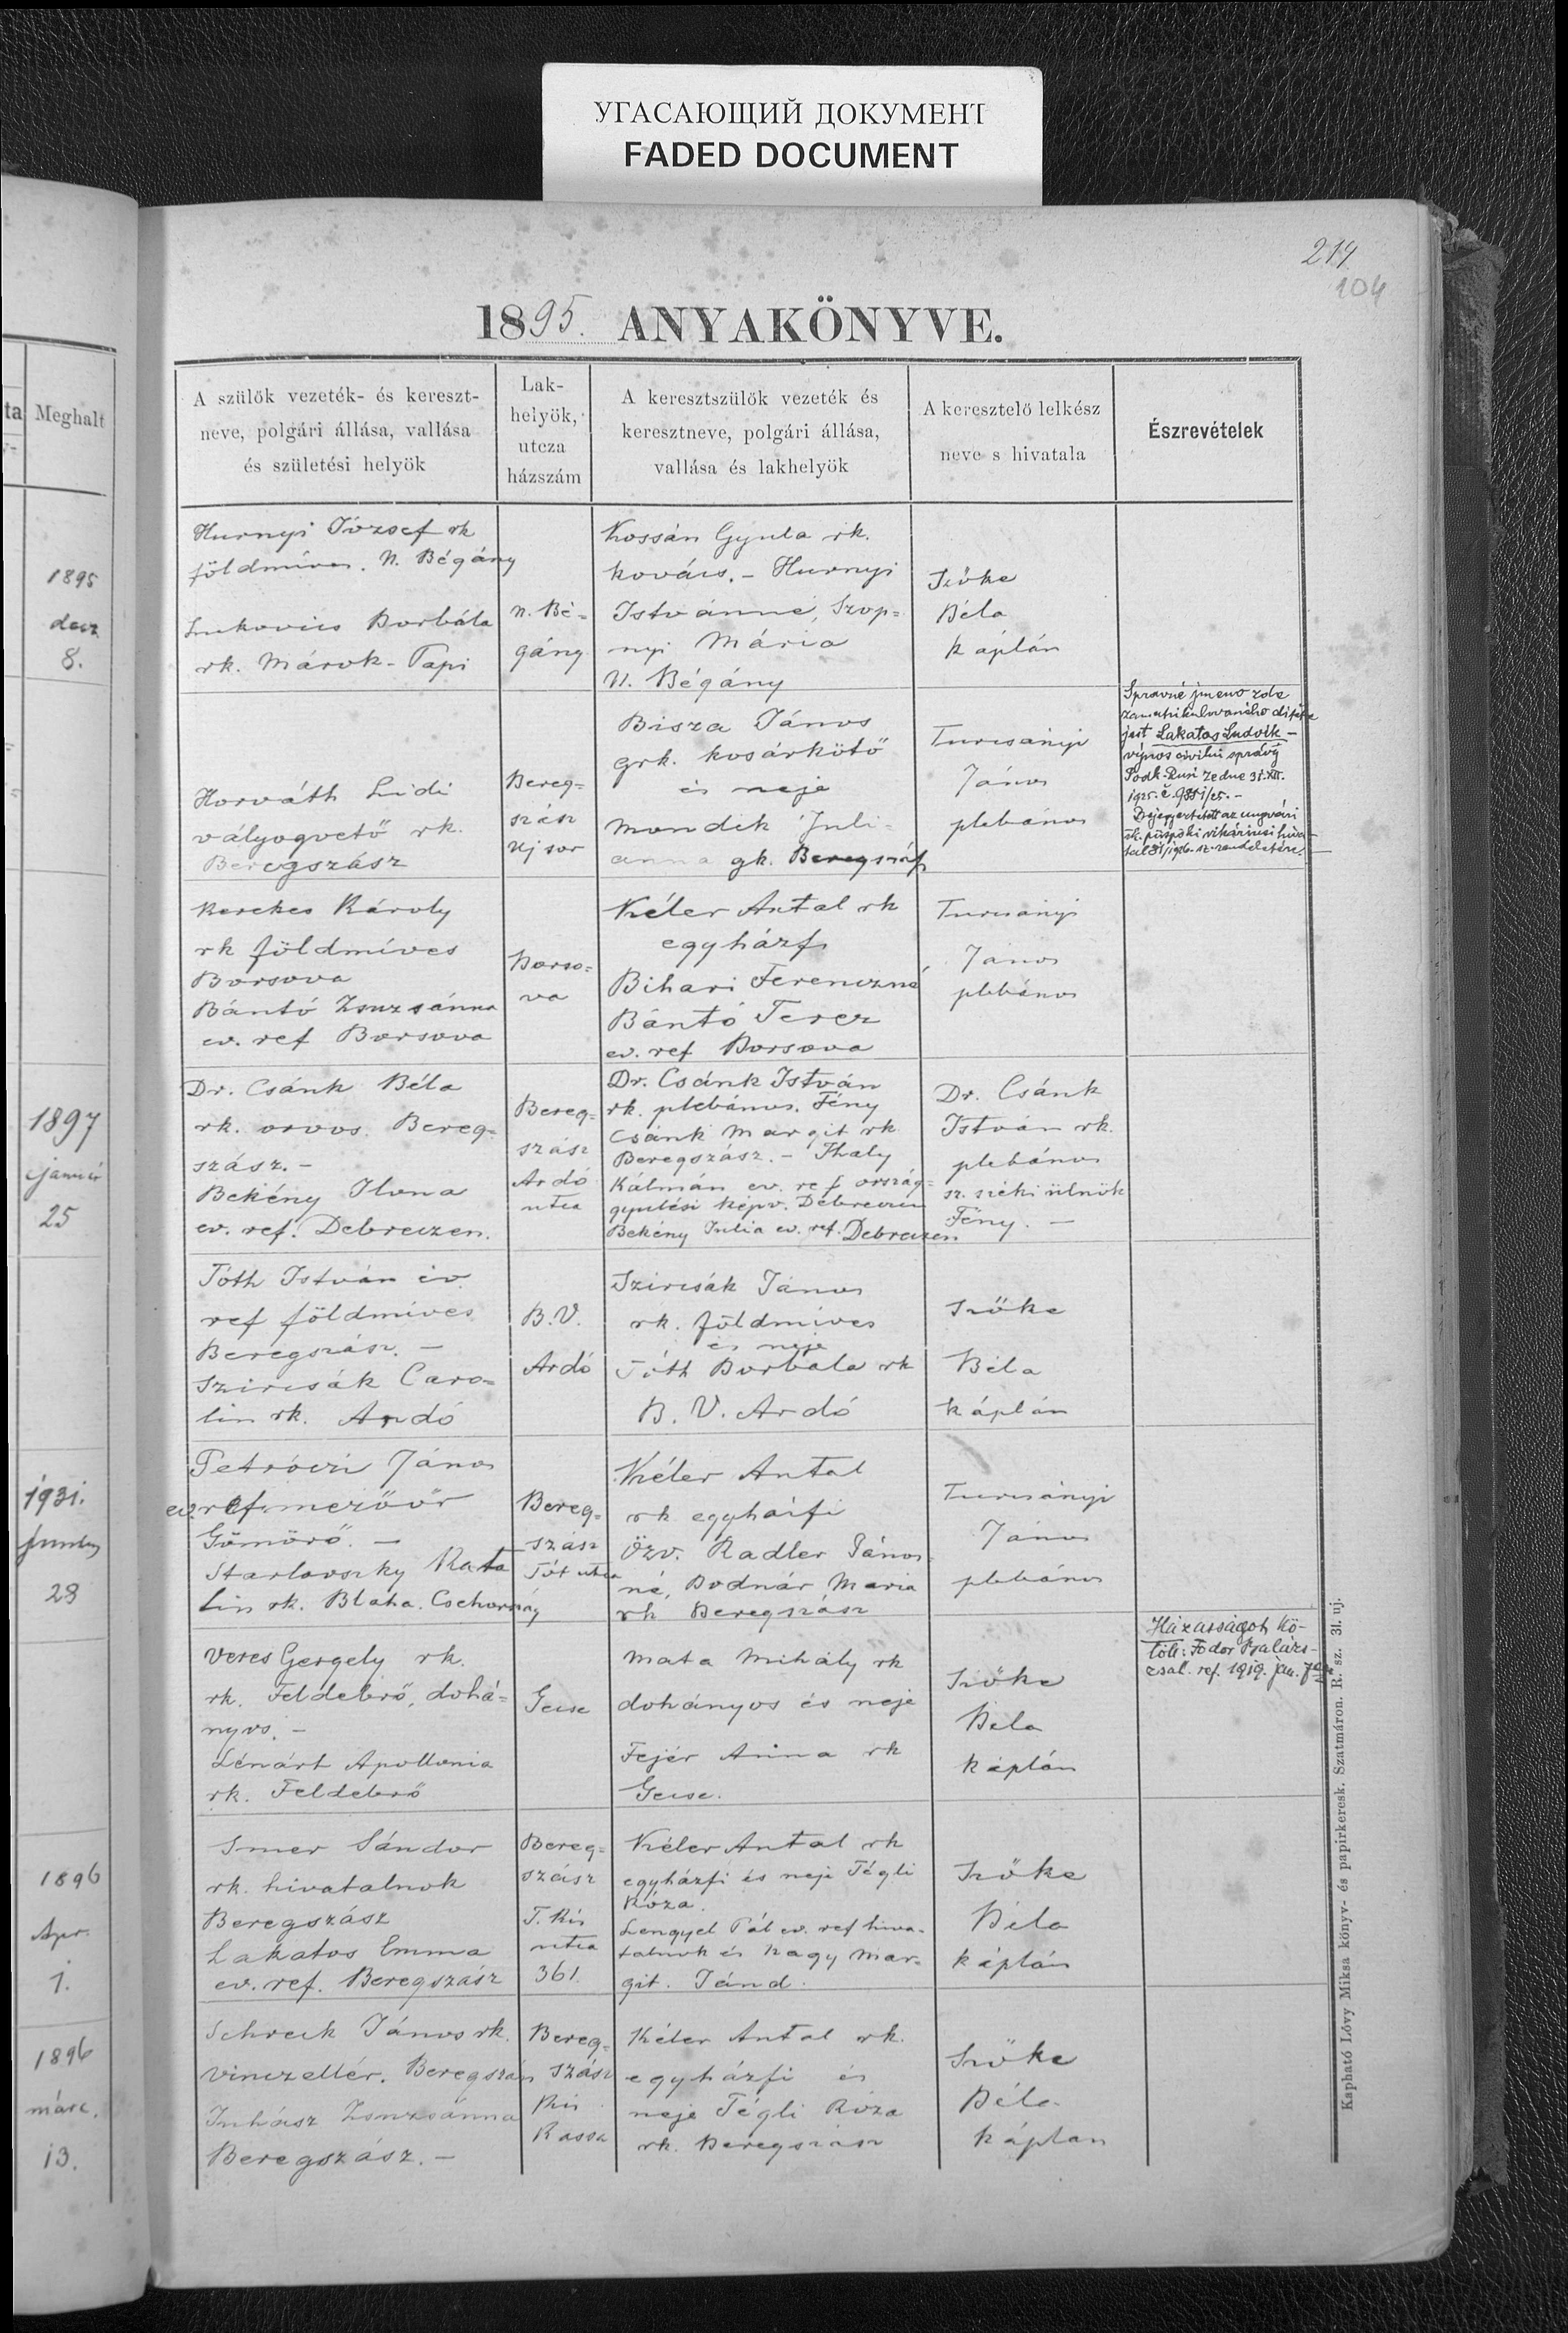 УГАСАЮЩИЙ ДОКУМЕНТ
FADED DOCUMENT
214
104
1895. ANYAKÖNYVE.
ta
Meghalt
A szülők vezeték- és kereszt-
neve, polgári állása, vallása
és születési helyök
Lak-
helyök,
utcza
házszám
A keresztszülők vezeték és
keresztneve, polgári állása,
vallása és lakhelyök
A keresztelő lelkész
neve s hivatala
Észrevételek
1895
decz.
8.
Hurnyi József rk
földmíves. N. Bégány
Lukovics Borbála
rk. Márok-Papi
N. Bé-
gány
Kossán Gyula rk.
kovács. - Hurnyi
Istvánné, Szop-
nyi Mária
N. Bégány
Szőke
Béla
káplán
Horváth Lidi
vályogvető rk.
Beregszász
Bereg-
szász
Uj sor
Bisza János
grk. kosárkötő
és neje
Mondik Juli-
anna gk. Beregszász
Turcsányi
János
plébános
Správné jméno zde
zamatrikulovaného dítěte
jest Lakatos Ludvik -
výnos civilní správy
Podk. Rusi ze dne 31.XII.
1925. č.
Bejegyeztetett az ungvári
rk. püspöki vikáriusi hiva-
tal 81/1926. sz. rendeletére.
Kerekes Károly
rk földmíves
Borsova
Bántó Zsuzsánna
ev. ref Borsova
Borso-
va
Kéler Antal rk
egyházfi
Bihari Ferenczné
Bántó Terez
ev. ref Borsova
Turcsányi
János
plébános
1897
január
25
Dr. Csánk Béla
rk. orvos. Bereg-
szász. -
Bekény Ilona
ev. ref. Debreczen.
Bereg-
szász
Ardó
utca
Dr. Csánk István
rk. plébános. Fény
Csánk Margit rk
Beregszász. - Thaly
Kálmán ev. ref ország-
gyülési képv. Debreczen
Bekény Julia ev. ref. Debreczen
Dr. Csánk
István rk.
plébános
sz. széki ülnök
Fény. -
Tóth István ev.
ref földmíves
Beregszász. -
Szircsák Caro-
lin rk. Ardó
B.V.
Ardó
Szircsák János
rk. földmíves
és neje
Tóth Borbála rk
B. V. Ardó
Szőke
Béla
káplán
1931.
28
Petróczi János
ev. ref. mezőőr
Gömörő. -
Starlovszky Kata
lin rk. Blaha. Csehország
Bereg-
szász
Tót utca
Kéler Antal
rk egyházfi
Özv. Radler János-
né, Bodnár Mária
rk Beregszász
Turcsányi
János
plébános
Veres Gergely rk.
rk. Feldebrő, dohá-
nyos. -
Lénárt Apollonia
rk. Feldebrő
Gecse
Mata Mihály rk
dohányos és neje
Fejér Anna rk
Gecse.
Szőke
Béla
káplán
Házasságot kö-
tött: Fodor Balázs-
zsal. ref. 1919. jan. 7én
1896
Apr.
1.
Imer Sándor
rk. hivatalnok
Beregszász
Lakatos Emma
ev. ref. Beregszász
Bereg-
szász
T. Kis
utca
361.
Kéler Antal rk
egyházfi és neje Tégli
Róza.
Lengyel Pál ev. ref hiva-
talnok és Nagy Mar-
git. Jánd.
Szőke
Béla
káplán
1896
márc.
13.
Schreck János rk.
vinczellér. Beregszász
Juhász Zsuzsánna
Beregszász. -
Bereg-
szász
Kis
Kassa
Kéler Antal rk.
egyházfi és
neje Tégli Róza
rk. Beregszász
Szőke
Béla
káplan
Kapható Lővy Miksa könyv- és papirkeresk. Szatmáron. R. sz. 31. uj.